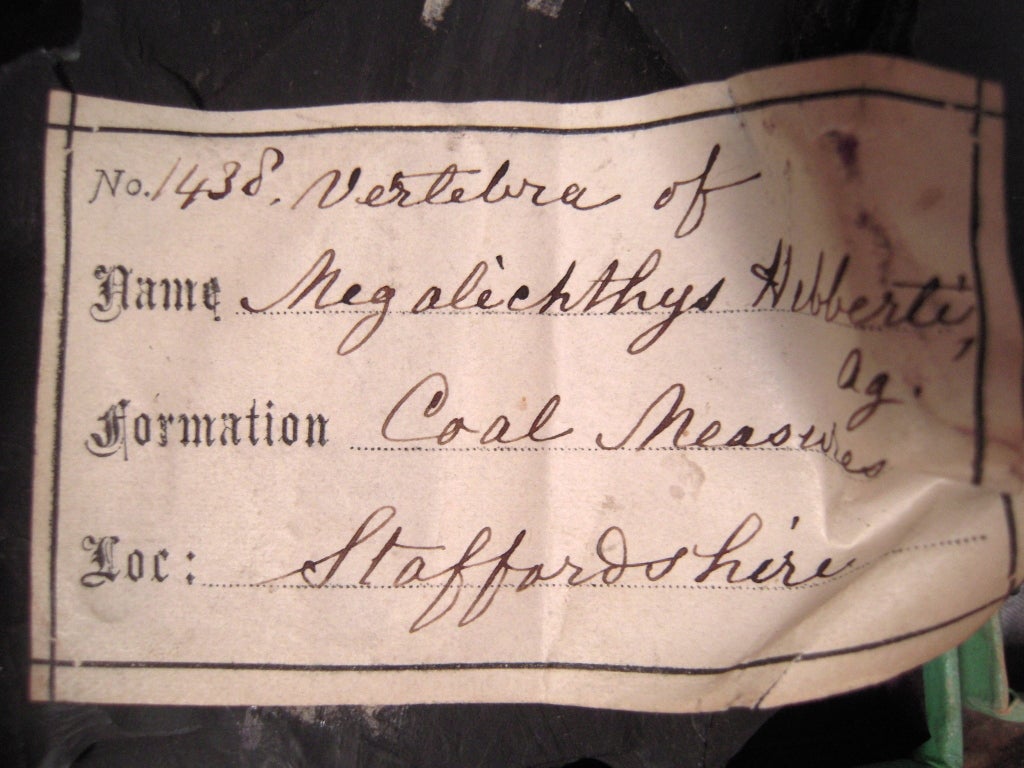 No. 1438. Vertebra of
Name Megalichthys Hibberti,
Ag.
Formation Coal Measures
Loc: Staffordshire